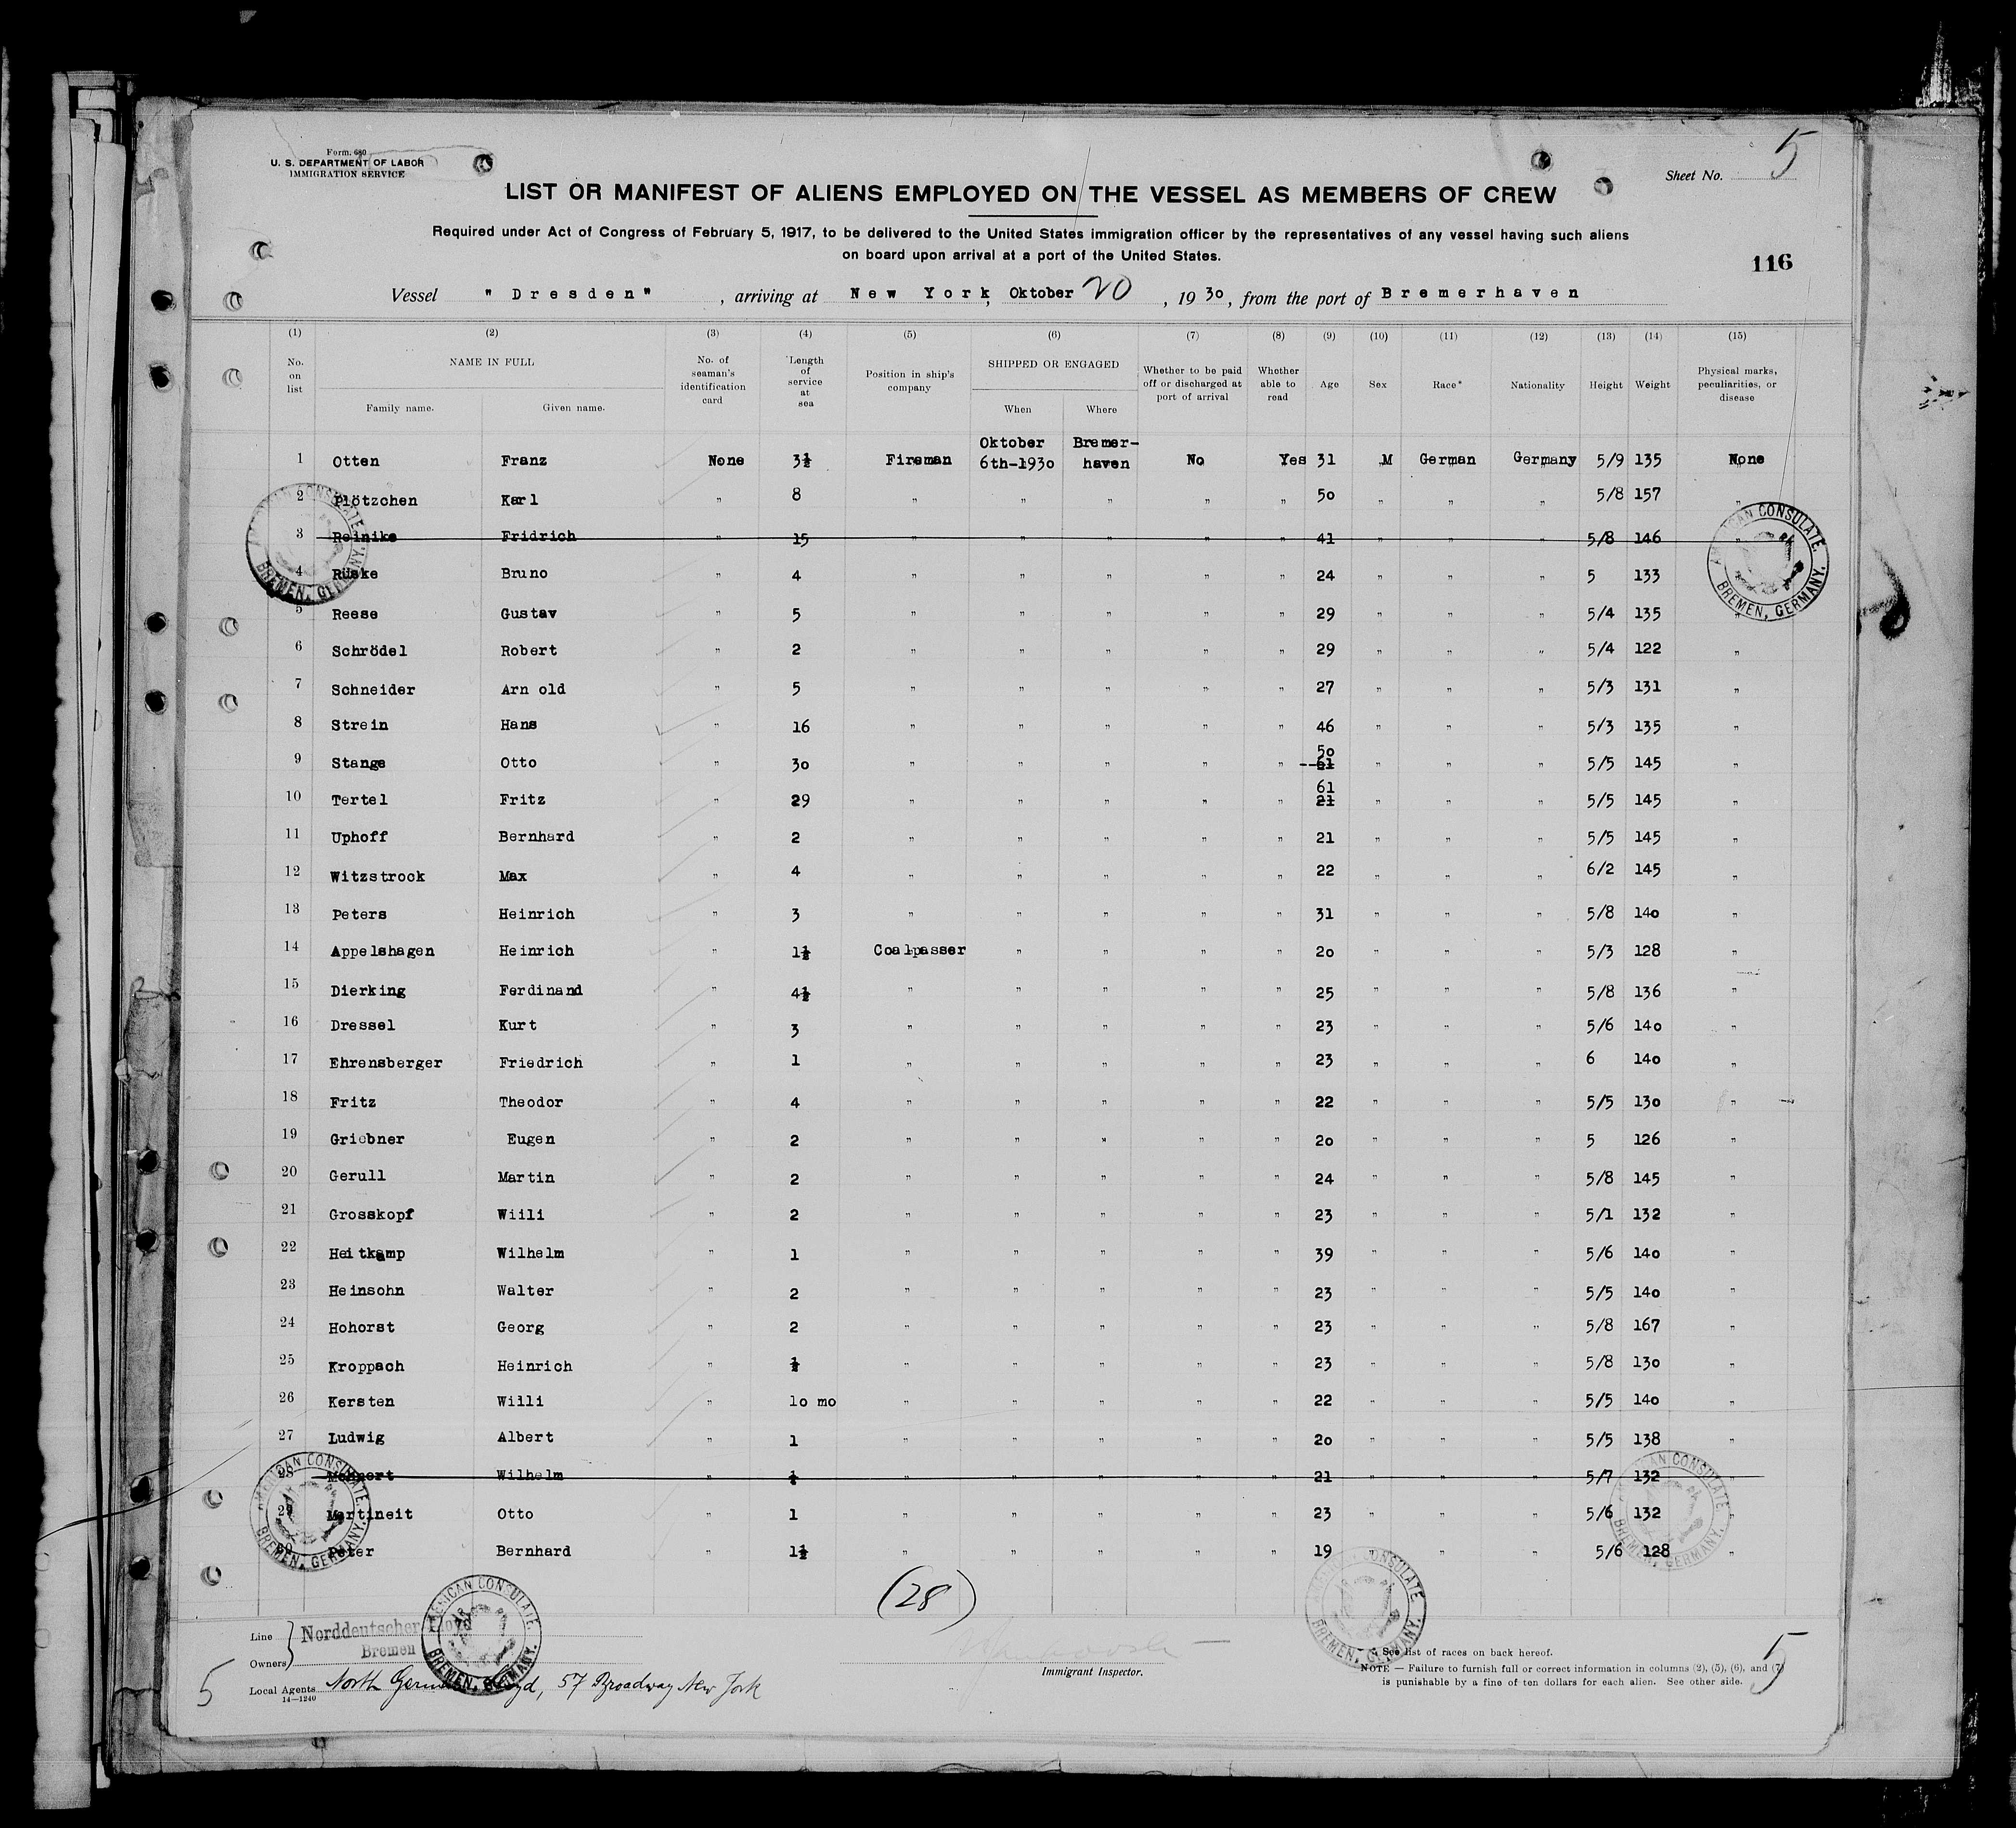 Form. 680
U. S. DEPARTMENT OF LABOR
IMMIGRATION SERVICE
Sheet No. 5
LIST OR MANIFEST OF ALIENS EMPLOYED ON THE VESSEL AS MEMBERS OF CREW
Required under Act of Congress of February 5, 1917, to be delivered to the United States immigration officer by the representatives of any vessel having such aliens
on board upon arrival at a port of the United States.
116
Vessel "Dresden", arriving at New York, Oktober 20, 1930, from the port of Bremerhaven
(1) (2) (3) (4) (5) (6) (7) (8) (9) (10) (11) (12) (13) (14) (15)
No. on list
NAME IN FULL
Family name. Given name.
No. of seaman's identification card
Length of service at sea
Position in ship's company
SHIPPED OR ENGAGED
When Where
Whether to be paid off or discharged at port of arrival
Whether able to read
Age
Sex
Race*
Nationality
Height
Weight
Physical marks, peculiarities, or disease
1 Otten Franz None 3½ Fireman Oktober 6th-1930 Bremerhaven No Yes 31 M German Germany 5/9 135 None
2 Plötzchen Karl " 8 " " " " " 50 " " " 5/8 157 "
3 Reinike Fridrich " 15 " " " " " 41 " " " 5/8 146 "
4 Rüske Bruno " 4 " " " " " 24 " " " 5 133
5 Reese Gustav " 5 " " " " " 29 " " " 5/4 135 "
6 Schrödel Robert " 2 " " " " " 29 " " " 5/4 122 "
7 Schneider Arn old " 5 " " " " " 27 " " " 5/3 131 "
8 Strein Hans " 16 " " " " " 46 " " " 5/3 135 "
9 Stange Otto " 30 " " " " " 50 61 " " " 5/5 145 "
10 Tertel Fritz " 29 " " " " " 61 21 " " " 5/5 145 "
11 Uphoff Bernhard " 2 " " " " " 21 " " " 5/5 145 "
12 Witzstrock Max " 4 " " " " " 22 " " " 6/2 145 "
13 Peters Heinrich " 3 " " " " " 31 " " " 5/8 140 "
14 Appelshagen Heinrich " 1½ Coalpasser " " " " 20 " " " 5/3 128 "
15 Dierking Ferdinand " 4½ " " " " " 25 " " " 5/8 136 "
16 Dressel Kurt " 3 " " " " " 23 " " " 5/6 140 "
17 Ehrensberger Friedrich " 1 " " " " " 23 " " " 6 140 "
18 Fritz Theodor " 4 " " " " " 22 " " " 5/5 130 "
19 Griebner Eugen " 2 " " " " " 20 " " " 5 126 "
20 Gerull Martin " 2 " " " " " 24 " " " 5/8 145 "
21 Grosskopf Wiili " 2 " " " " " 23 " " " 5/1 132 "
22 Heitkamp Wilhelm " 1 " " " " " 39 " " " 5/6 140 "
23 Heinsohn Walter " 2 " " " " " 23 " " " 5/5 140 "
24 Hohorst Georg " 2 " " " " " 23 " " " 5/8 167 "
25 Kroppach Heinrich " ½ " " " " " 23 " " " 5/8 130 "
26 Kersten Willi " 10 mo " " " " " 22 " " " 5/5 140 "
27 Ludwig Albert " 1 " " " " " 20 " " " 5/5 138 "
28 Wilhelm " ½ " " " " " 21 " " " 5/7 132 "
29 Martineit Otto " 1 " " " " " 23 " " " 5/6 132 "
30 Peter Bernhard " 1½ " " " " " 19 " " " 5/6 128 "
(28)
AMERICAN CONSULATE. BREMEN, GERMANY.
AMERICAN CONSULATE. BREMEN, GERMANY.
AMERICAN CONSULATE. BREMEN, GERMANY.
AMERICAN CONSULATE. BREMEN, GERMANY.
AMERICAN CONSULATE. BREMEN, GERMANY.
AMERICAN CONSULATE. BREMEN, GERMANY.
Line Norddeutscher Lloyd
Owners Bremen
Local Agents North German Lloyd, 57 Broadway New York
14—1240
5
Immigrant Inspector.
* See list of races on back hereof.
NOTE — Failure to furnish full or correct information in columns (2), (5), (6), and (7)
is punishable by a fine of ten dollars for each alien. See other side.
5